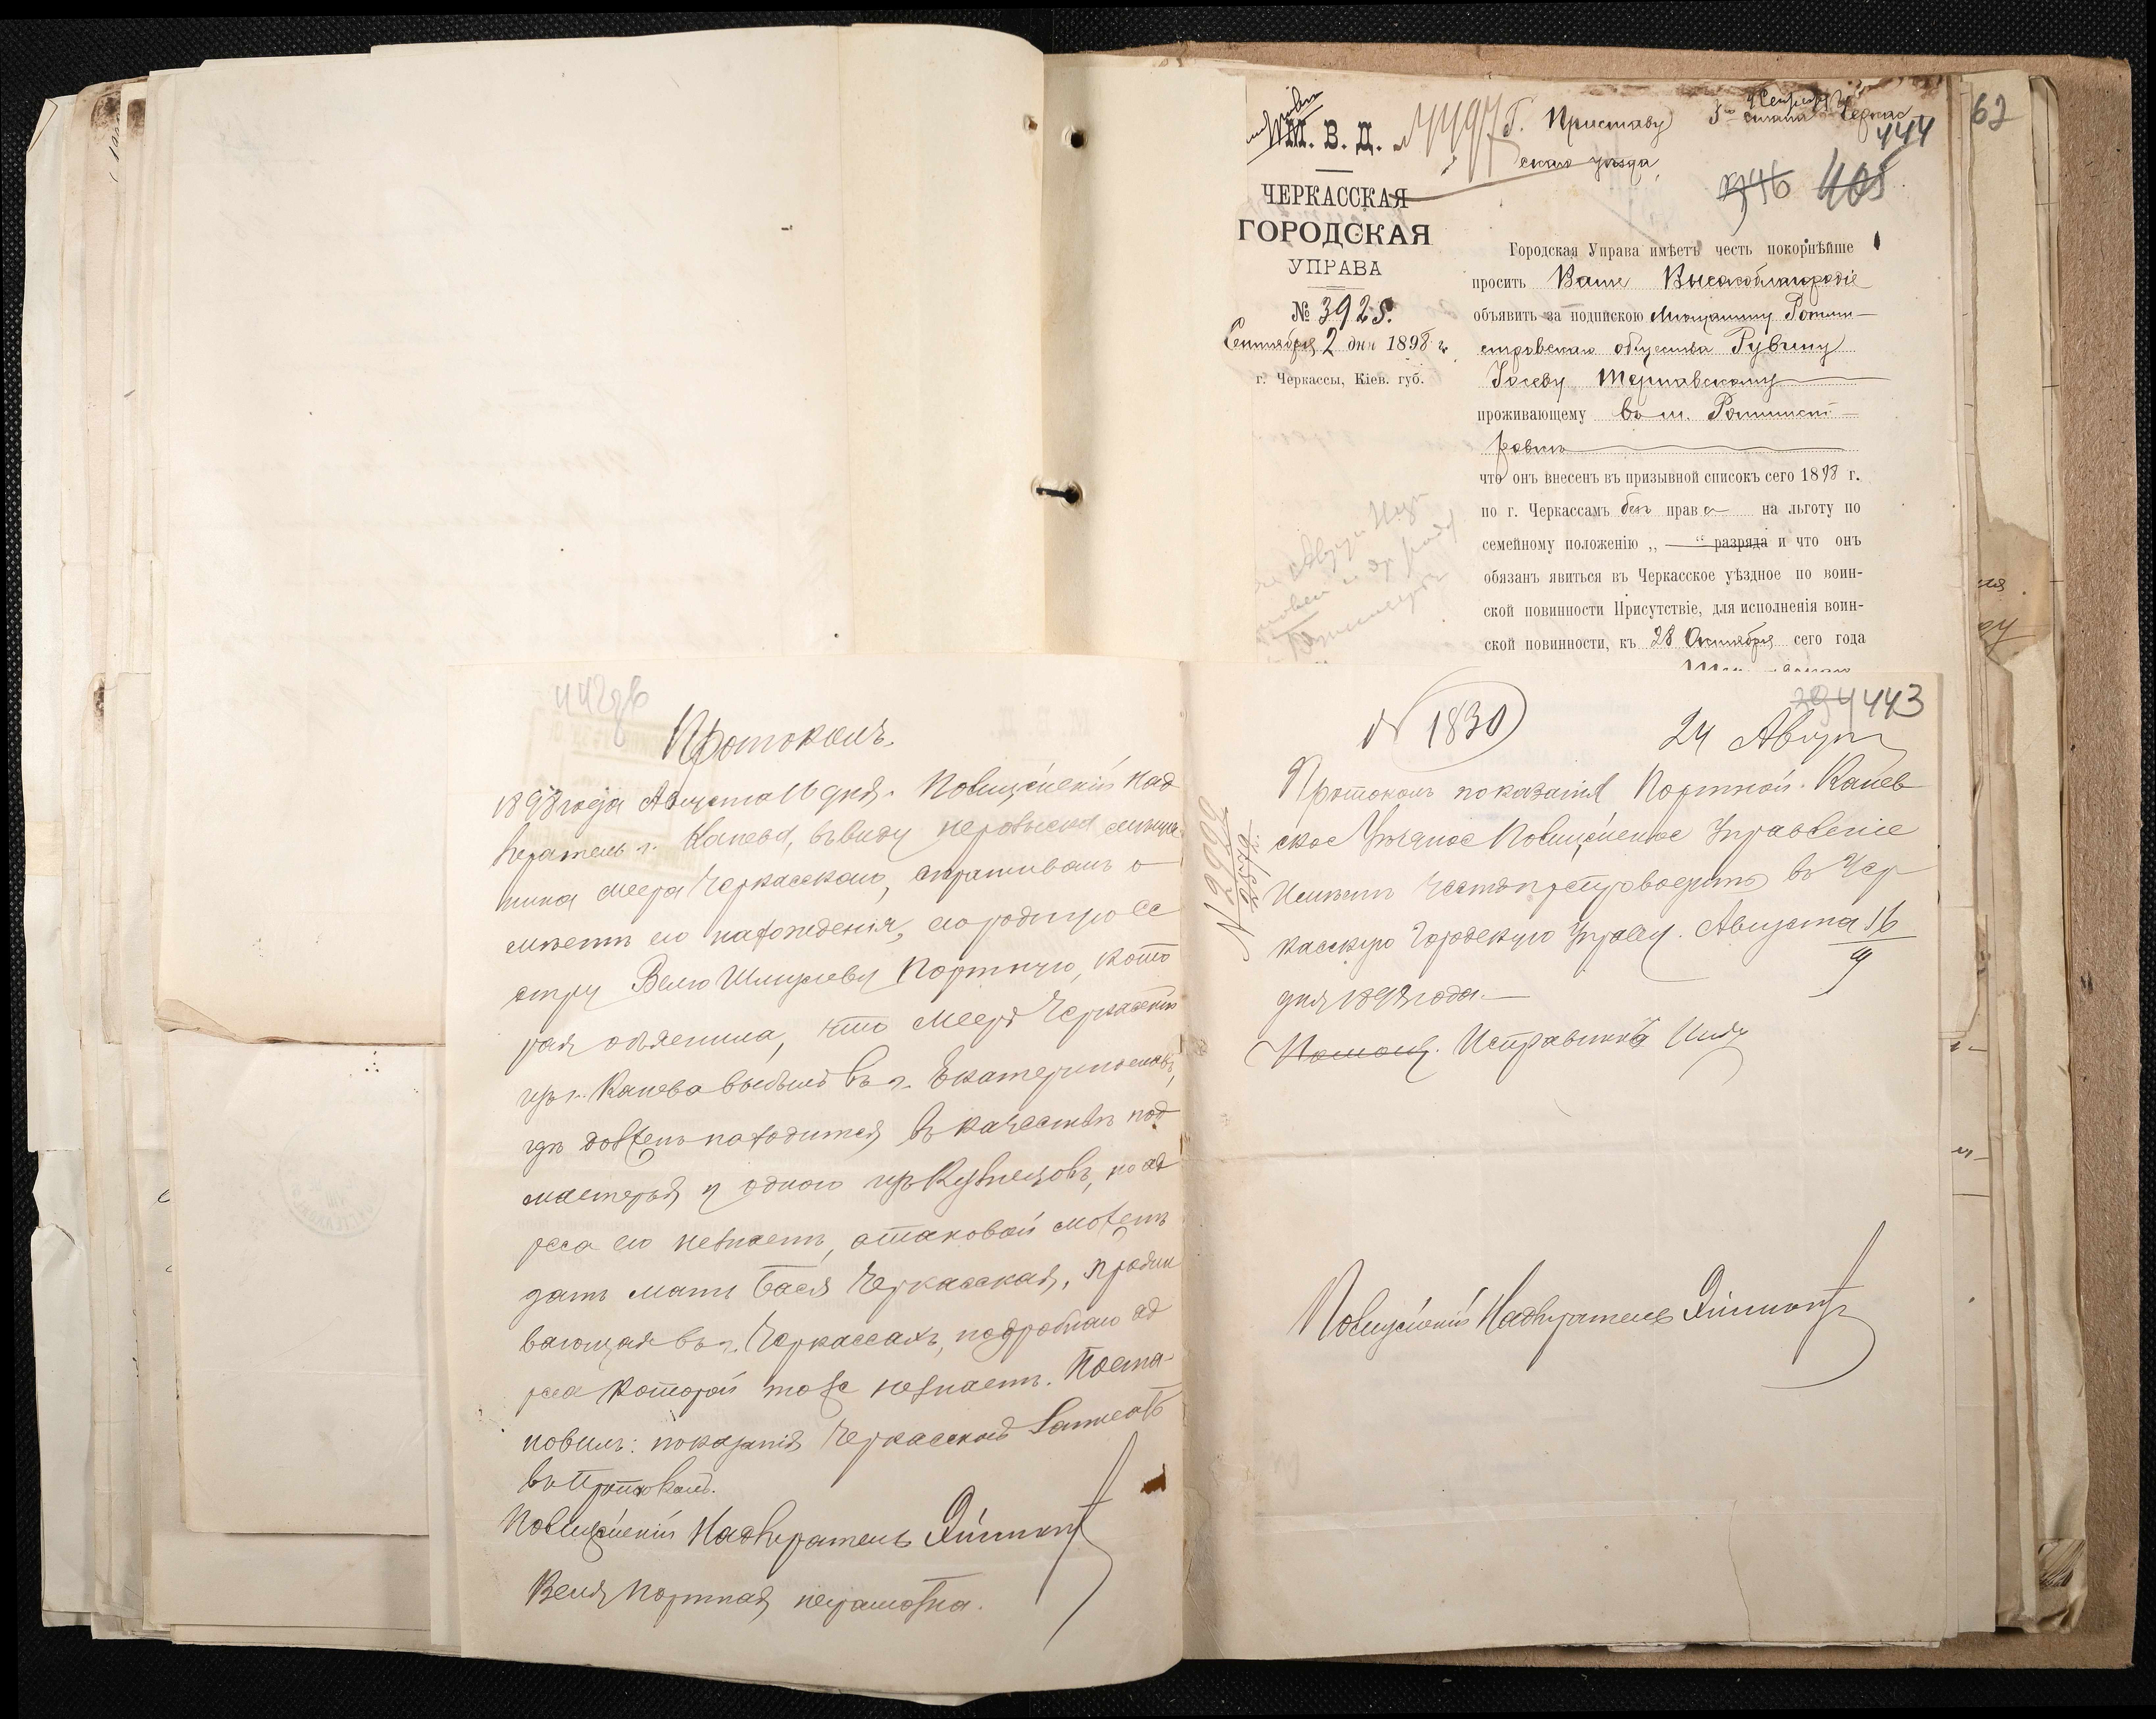 М. В. Д.
ЧЕРКАССКАЯ
ГОРОДСКАЯ
УПРАВА
№ 3925.
Сентября 2 дня 1898 г.
г. Черкассы, Кіев. губ.
Г. Приставу 5го стана Черкас
скаго уѣзда,
62
444
405
Городская Управа имѣетъ честь покорнѣйше
просить Ваше Высокоблагородіе
объявить за подпискою мѣщанину Ротми-
стровскаго общества Рувину
Іосеву Тернавскому
проживающему въ м. Ротмист-
ровкѣ
что онъ внесенъ въ призывной списокъ сего 1898 г.
по г. Черкассамъ безъ права на льготу по
семейному положенію „ — “ разряда и что онъ
обязанъ явиться въ Черкасское уѣздное по воин-
ской повинности Присутствіе, для исполненія воин-
ской повинности, къ 28 Октября сего года
Протоколъ.
1898 года Августа 16 дня. Полицейскій Над
зиратель г. Канева, въ виду нерозыска мѣща
нина Меера Черкасскаго, спрашивалъ о
мѣстѣ его нахожденія, его родную се
стру Велю Шмулеву Портную, кото
рая объяснила, что Мееръ Черкасскій
изъ г. Канева выбылъ въ г. Екатеринославъ,
гдѣ долженъ находится въ качествѣ под
мастерья у одного изъ Кузнецовъ, но ад
реса его незнаетъ, а таковой можетъ
дать мать Бася Черкасская, прожи
вающая въ г. Черкассахъ, подробнаго ад
реса которой тоже незнаетъ. Поста-
новилъ: показанія Черкасской записать
въ протоколъ.
Полицейскій Надзиратель
Веля Портная неграмотна.
№ 1830
24 Август
443
Протоколъ показанія Портной. Канев
ское Уѣздное Полицейское Управленіе
Имѣетъ честь препроводить въ Чер
касскую Городскую Управу. Августа 16
дня 1898 года.—
Помощ. Исправника
Полицейскій Надзиратель